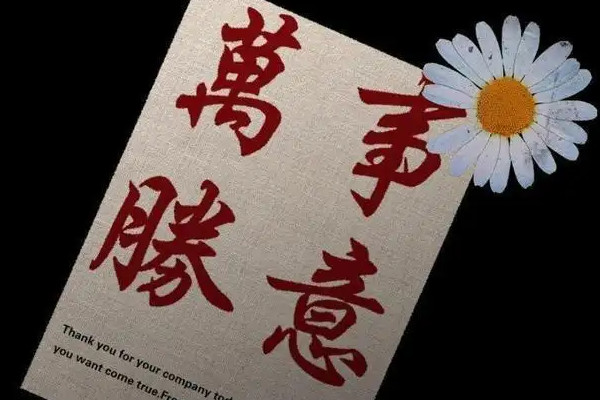 萬事
勝意
Thank you for your company
you want come true.